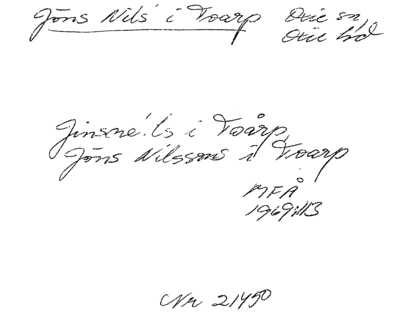 Jöns Nils' i Toarp Oxie sn,
Oxie hd
Jinsne:ls i Toårp,
Jöns Nilssons i Toarp
MFÅ
1969:113
Nr 21450